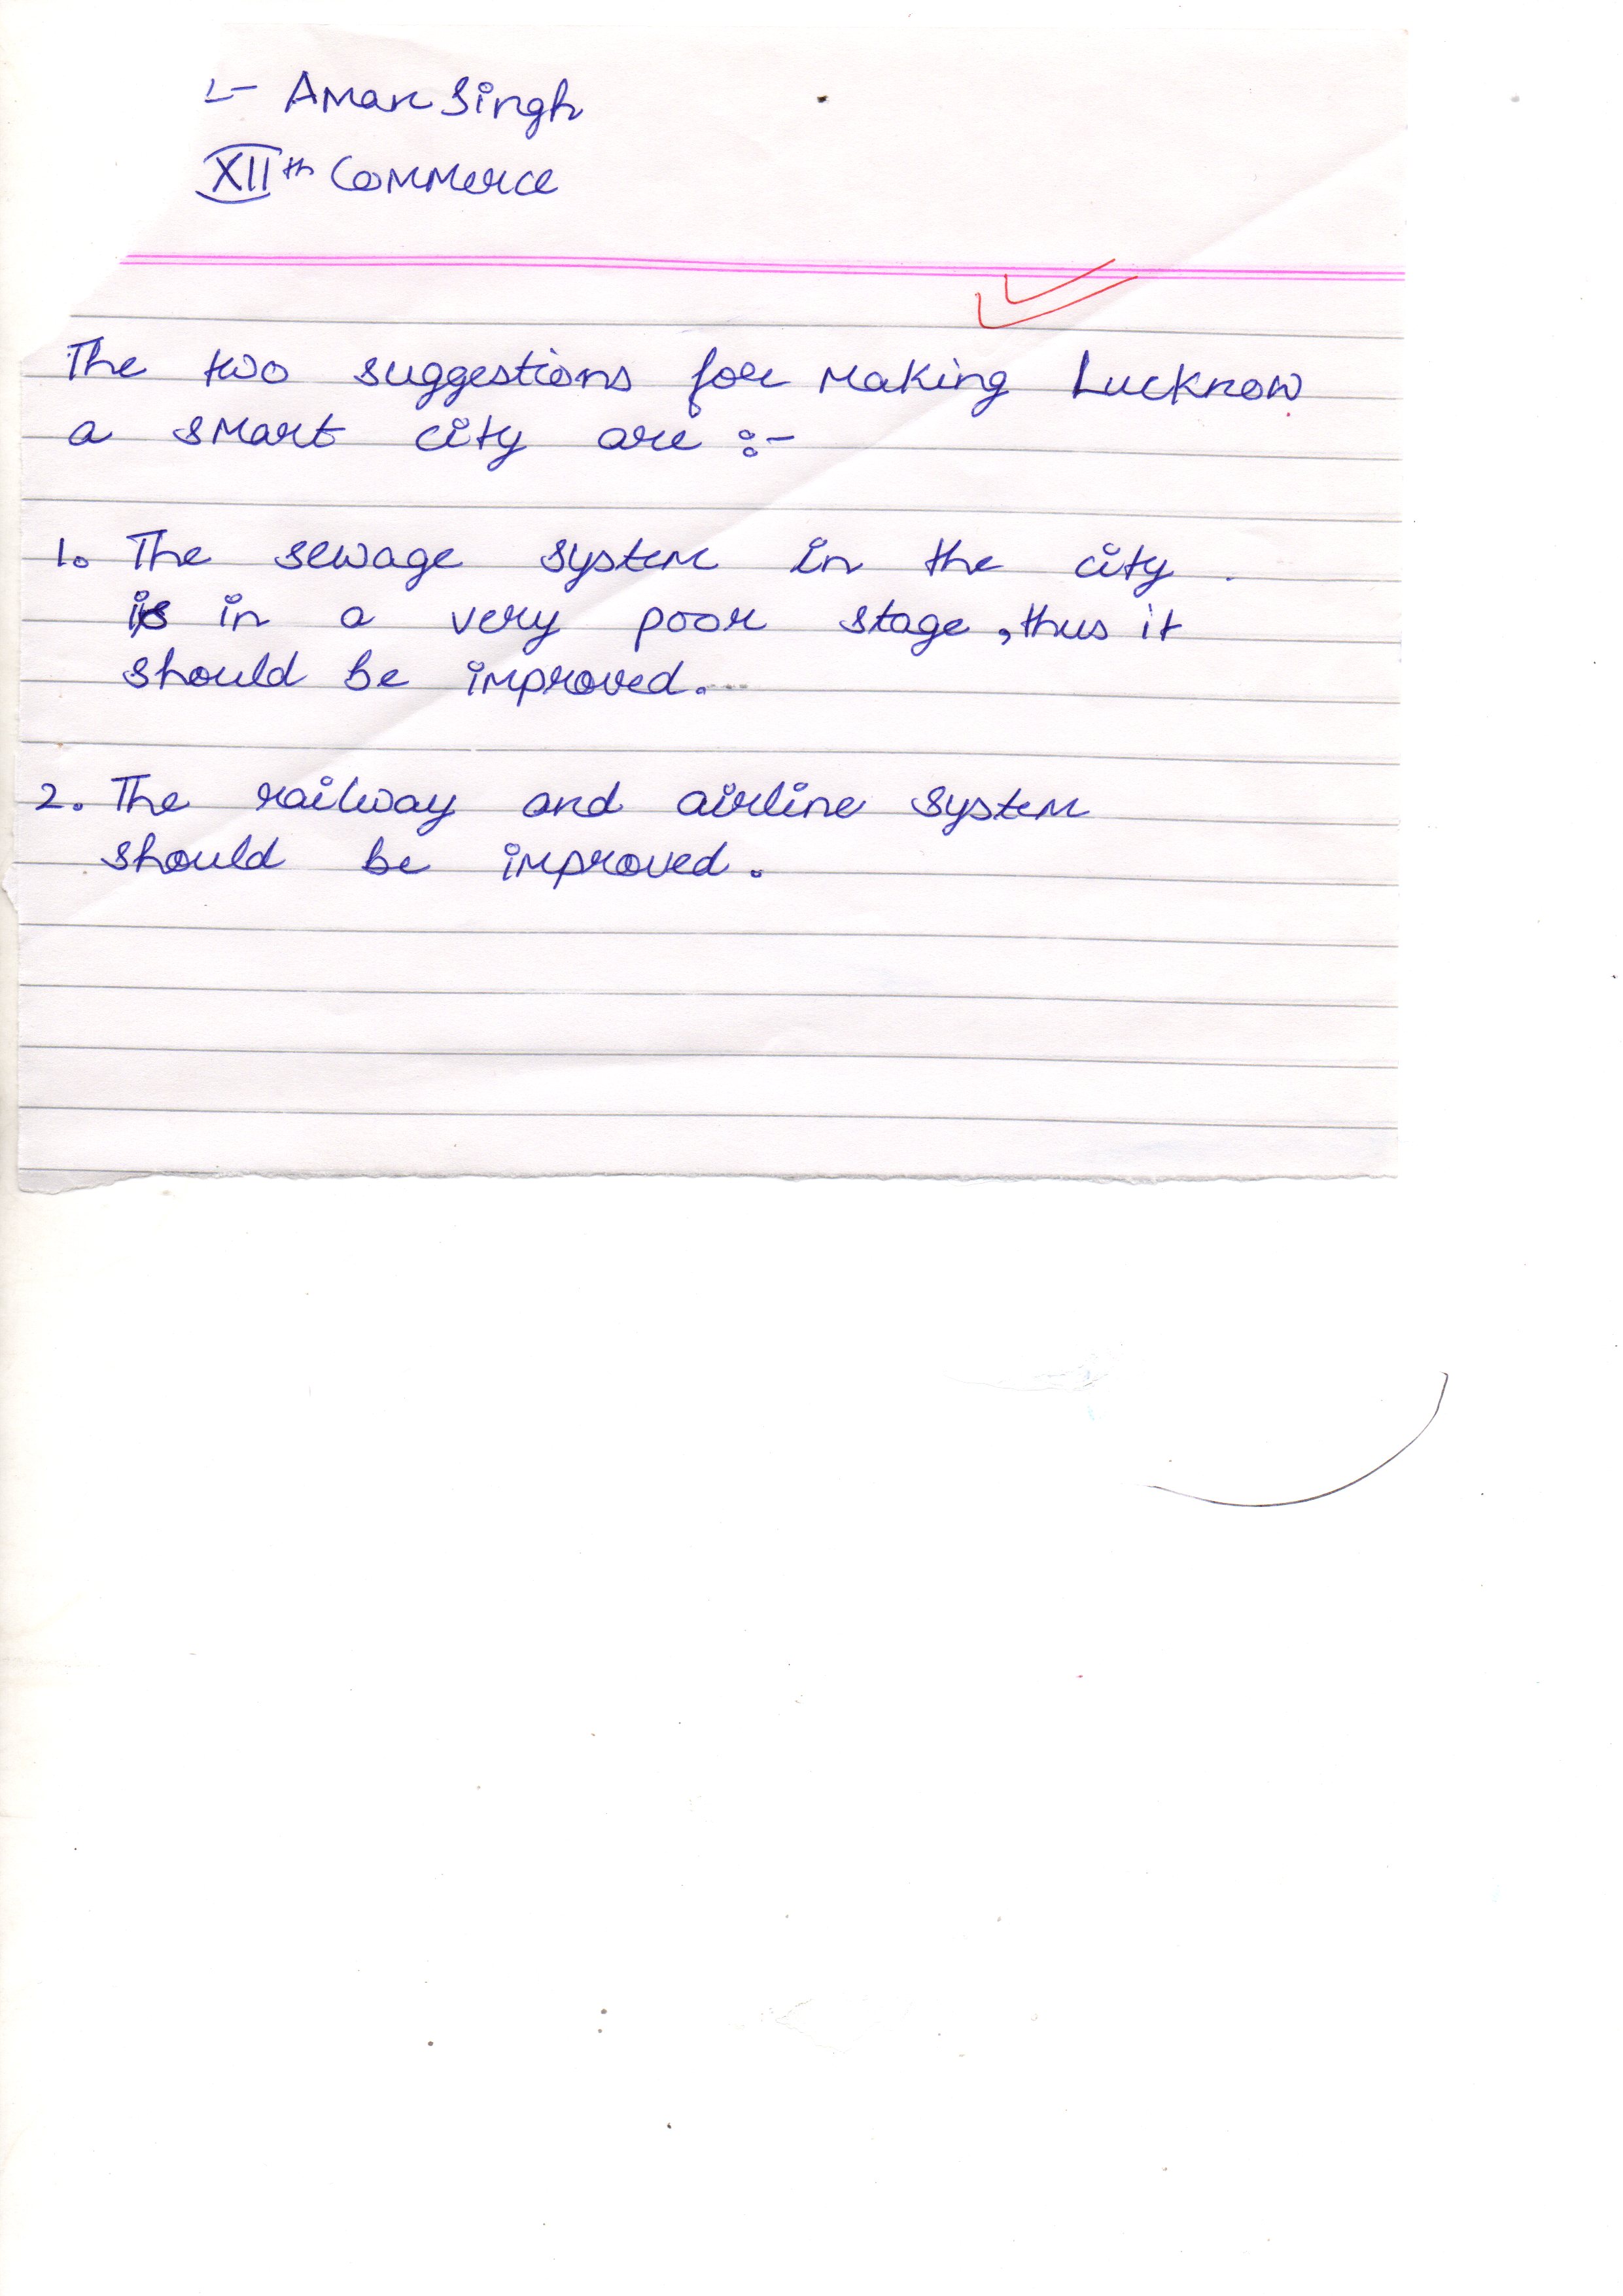 :- Aman Singh
XIIth Commerce
The two suggestions for making Lucknow
a smart city are :-
1. The sewage system in the city
is in a very poor stage, thus it
should be improved.
2. The railway and airline system
should be improved.